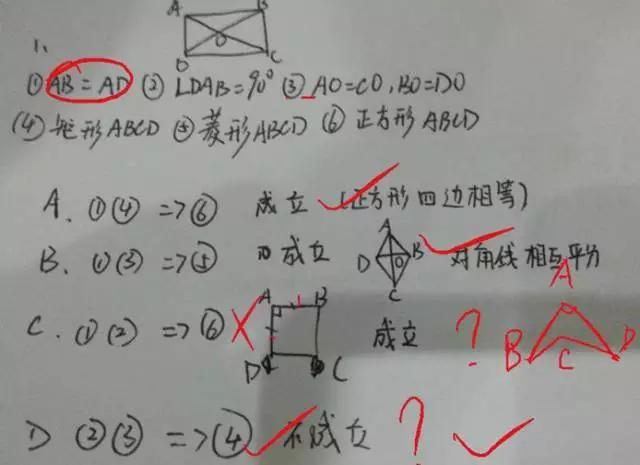 A B
O
D C
1.
① AB=AD ② ∠DAB=90° ③ AO=CO,BO=DO
(4) 矩形ABCD ⑤ 菱形ABCD ⑥ 正方形ABCD
A. ①(4) => ⑥ 成立 (正方形四边相等)
B. ①(3) => ⑤ 成立 A D O B C 对角线相互平分
C. ①(2) => ⑥ A B D C 成立 ? A B C D
D ②③ => ④ 不成立 ?